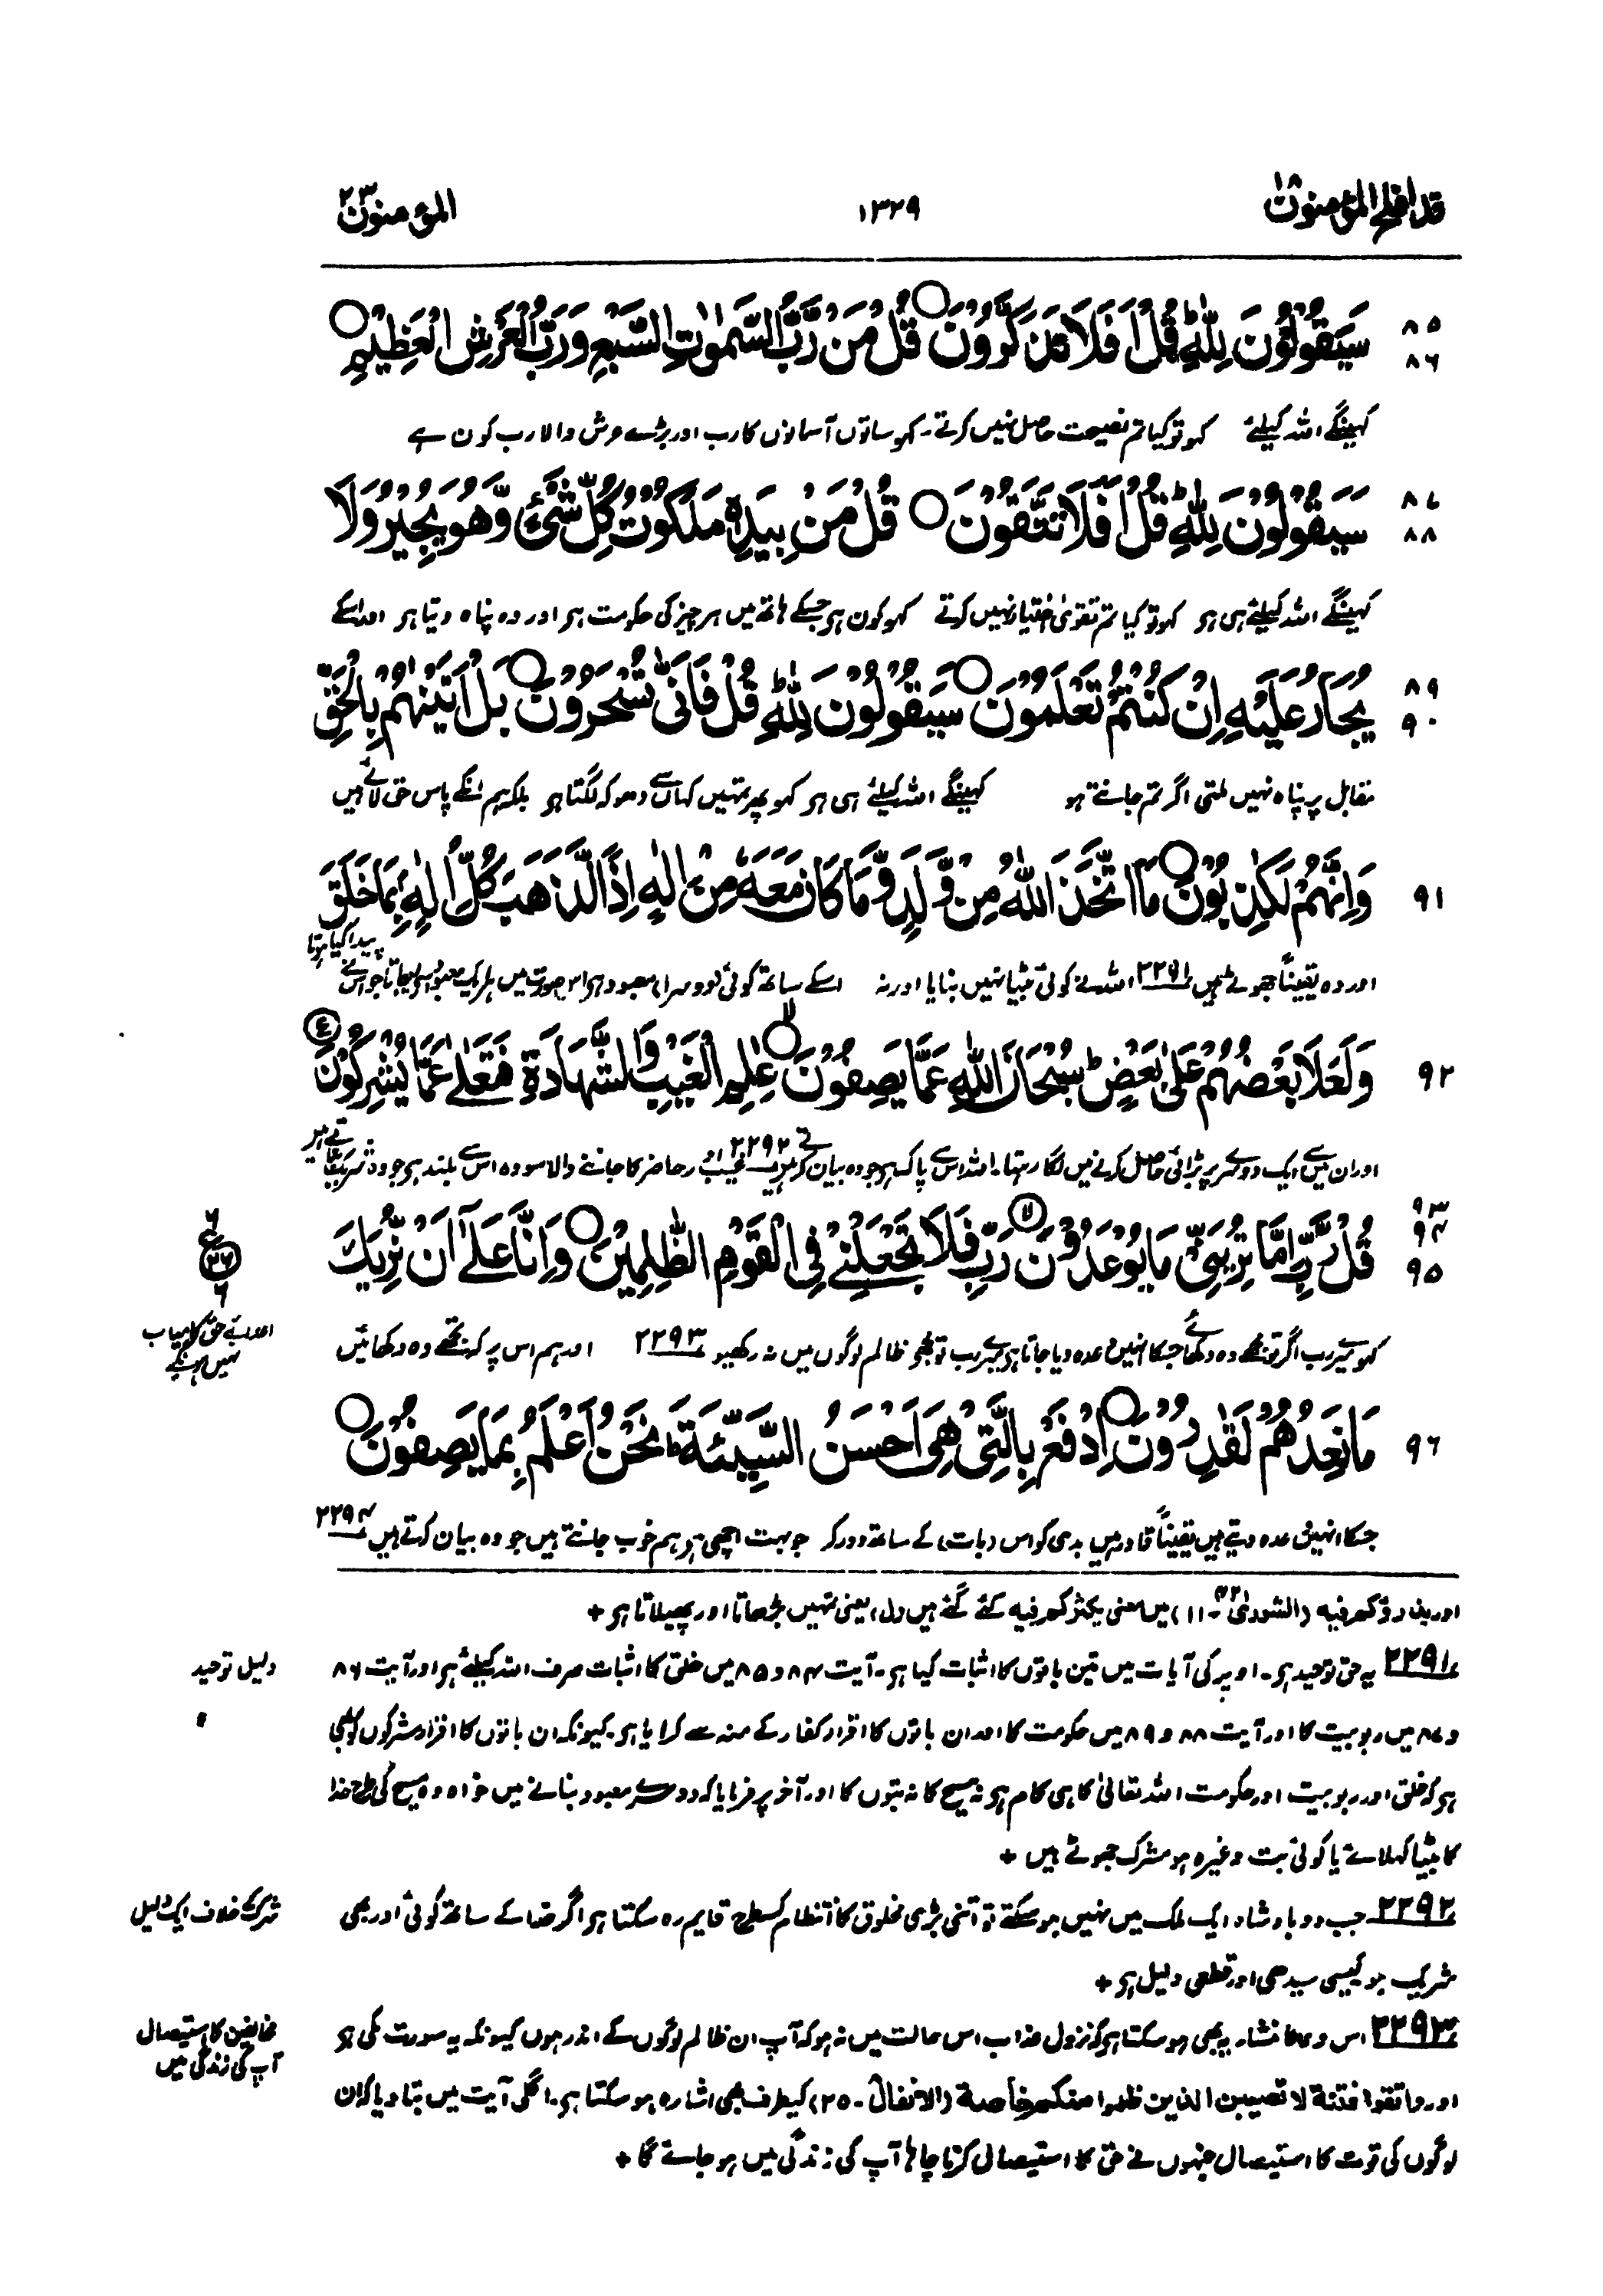 قد افلح المؤمنون ۱۸
۱۳۲۹
المؤمنون ۲۳
۸۵
۸۶
سَيَقُوْلُوْنَ لِلّٰهِؕ قُلْ اَفَلَا تَذَكَّرُوْنَ○ قُلْ مَنْ رَّبُّ السَّمٰوٰتِ السَّبْعِ وَرَبُّ الْعَرْشِ الْعَظِيْمِ○
کہینگے اللہ کیلئے کہو تو کیا تم نصیحت حاصل نہیں کرتے۔ کہو ساتوں آسمانوں کا رب اور بڑے عرش والا رب کون ہے
۸۷
۸۸
سَيَقُوْلُوْنَ لِلّٰهِؕ قُلْ اَفَلَا تَتَّقُوْنَ○ قُلْ مَنْۢ بِيَدِهٖ مَلَكُوْتُ كُلِّ شَيْءٍ وَّهُوَ يُجِيْرُ وَلَا
کہینگے اللہ کیلئے ہی ہر کہو تو کیا تم تقویٰ اختیار نہیں کرتے کہو کون ہر جسکے ہاتھ میں ہر چیز کی حکومت ہر اور وہ پناہ دیتا ہر اور اسکے
۸۹
۹۰
يُجَارُ عَلَيْهِ اِنْ كُنْتُمْ تَعْلَمُوْنَ○ سَيَقُوْلُوْنَ لِلّٰهِؕ قُلْ فَاَنّٰى تُسْحَرُوْنَ○ بَلْ اَتَيْنٰهُمْ بِالْحَقِّ
مقابل پر پناہ نہیں ملتی اگر تم جانتے ہو کہینگے اللہ کیلئے ہی ہر کہو پھر تمہیں کہاں سے دھوکہ لگتا ہر بلکہ ہم انکے پاس حق لائے ہیں
۹۱
وَاِنَّهُمْ لَكٰذِبُوْنَ○ مَا اتَّخَذَ اللّٰهُ مِنْ وَّلَدٍ وَّمَا كَانَ مَعَهٗ مِنْ اِلٰهٍ اِذًا لَّذَهَبَ كُلُّ اِلٰهٍۢ بِمَا خَلَقَ
اور وہ یقیناً جھوٹے ہیں ۲۲۹۱ اللہ نے کوئی بیٹا نہیں بنایا اور نہ اسکے ساتھ کوئی (دوسرا) معبود ہر اس صورت میں ہر ایک معبود لیجاتا جو اس نے پیدا کیا ہوتا
۹۲
وَلَعَلَا بَعْضُهُمْ عَلٰى بَعْضٍؕ سُبْحٰنَ اللّٰهِ عَمَّا يَصِفُوْنَ○ۙ عٰلِمِ الْغَيْبِ وَالشَّهَادَةِ فَتَعٰلٰى عَمَّا يُشْرِكُوْنَ
اور ان میں سے ایک دوسرے پر بڑائی حاصل کرنے میں لگا رہتا۔ اللہ اس سے پاک ہر جو وہ بیان کرتے ہیں ۲۲۹۲ غیب اور حاضر کا جاننے والا سو وہ اس سے بلند ہر جو وہ شریک بناتے ہیں
۹۳
۹۴
۹۵
قُلْ رَّبِّ اِمَّا تُرِيَنِّيْ مَا يُوْعَدُوْنَ رَبِّ فَلَا تَجْعَلْنِيْ فِي الْقَوْمِ الظّٰلِمِيْنَ○ وَاِنَّا عَلٰٓى اَنْ نُّرِيَكَ
کہو میرے رب اگر تو مجھے وہ دکھائے جسکا انہیں وعدہ دیا جاتا ہر میرے رب تو مجھے ظالم لوگوں میں نہ رکھیو ۲۲۹۳ اور ہم اس پر کہ تجھے وہ دکھائیں
۶
ع
۶
اعدائے حق کامیاب
نہیں ہونگے
۹۶
مَا نَعِدُهُمْ لَقٰدِرُوْنَ○ اِدْفَعْ بِالَّتِيْ هِيَ اَحْسَنُ السَّيِّئَةَؕ نَحْنُ اَعْلَمُ بِمَا يَصِفُوْنَ○
جسکا انہیں وعدہ دیتے ہیں یقیناً قادر ہیں بدی کو اس (بات) کے ساتھ دور کر جو بہت اچھی ہر ہم خوب جانتے ہیں جو وہ بیان کرتے ہیں ۲۲۹۴
اور یذرؤکم فیہ (الشوریٰ ۴۲۔۱۱) میں معنی یکثرکم فیہ کئے گئے ہیں (ل) یعنی تمہیں بڑھاتا اور پھیلاتا ہر +
۲۲۹۱ یہ حق توحید ہر۔ اوپر کی آیات میں تین باتوں کا اثبات کیا ہر۔ آیت ۸۴ و ۸۵ میں خلق کا اثبات صرف اللہ کیلئے ہر اور آیت ۸۶
دلیل توحید
و ۸۷ میں ربوبیت کا اور آیت ۸۸ و ۸۹ میں حکومت کا اور ان باتوں کا اقرار کفار کے منہ سے کرایا ہر۔ کیونکہ ان باتوں کا اقرار مشرکوں کو بھی
ہر کہ خلق اور ربوبیت اور حکومت اللہ تعالیٰ کا ہی کام ہر نہ مسیح کا نہ بتوں کا اور آخر پر فرمایا کہ دوسرے معبود بنانے میں خواہ وہ مسیح کی طرح خدا
کا بیٹا کہلائے یا کوئی بت وغیرہ ہو مشرک جھوٹے ہیں +
۲۲۹۲ جب دو بادشاہ ایک ملک میں نہیں ہو سکتے تو اتنی بڑی مخلوق کا انتظام کسطرح قایم رہ سکتا ہر اگر خدا کے ساتھ کوئی اور بھی
شرک کے خلاف ایک دلیل
شریک ہو کیسی سیدھی اور قطعی دلیل ہر +
۲۲۹۳ اس دعا کا منشاء یہ بھی ہو سکتا ہر کہ نزول عذاب اس حالت میں نہ ہو کہ آپ ان ظالم لوگوں کے اندر ہوں کیونکہ یہ سورت مکی ہر
مخالفین کا استیصال
آپ کی زندگی میں
اور واتقوا فتنة لا تصیبن الذین ظلموا منکم خاصة (الانفال۔۲۵) کیطرف بھی اشارہ ہو سکتا ہر۔ اگلی آیت میں بتا دیا کہ ان
لوگوں کی قوت کا استیصال جنہوں نے حق کا استیصال کرنا چاہا آپ کی زندگی میں ہو جائے گا +